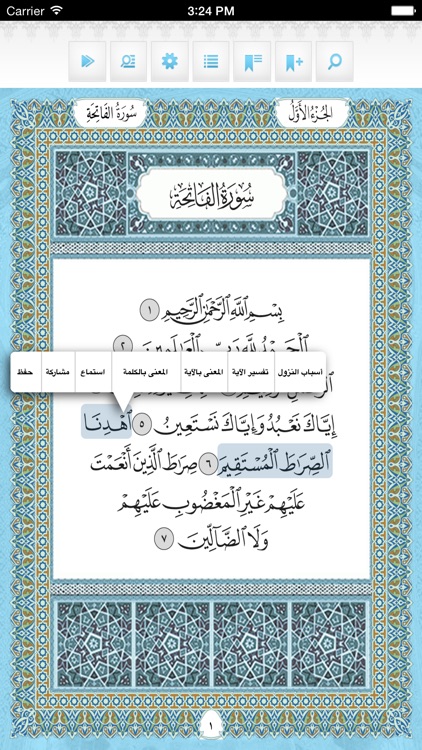 Carrier 3:24 PM
الجُزْءُ الأَوَّلُ سُورَةُ الفَاتِحَةِ
سُورَةُ الفَاتِحَةِ
بِسْمِ ٱللَّهِ ٱلرَّحْمَٰنِ ٱلرَّحِيمِ ١
ٱلْحَمْدُ لِلَّهِ رَبِّ ٱلْعَٰلَمِينَ ٢
اسباب النزول تفسير الآية المعنى بالآية المعنى بالكلمة استماع مشاركة حفظ
إِيَّاكَ نَعْبُدُ وَإِيَّاكَ نَسْتَعِينُ ٥ ٱهْدِنَا
ٱلصِّرَٰطَ ٱلْمُسْتَقِيمَ ٦ صِرَٰطَ ٱلَّذِينَ أَنْعَمْتَ
عَلَيْهِمْ غَيْرِ ٱلْمَغْضُوبِ عَلَيْهِمْ
وَلَا ٱلضَّآلِّينَ ٧
١